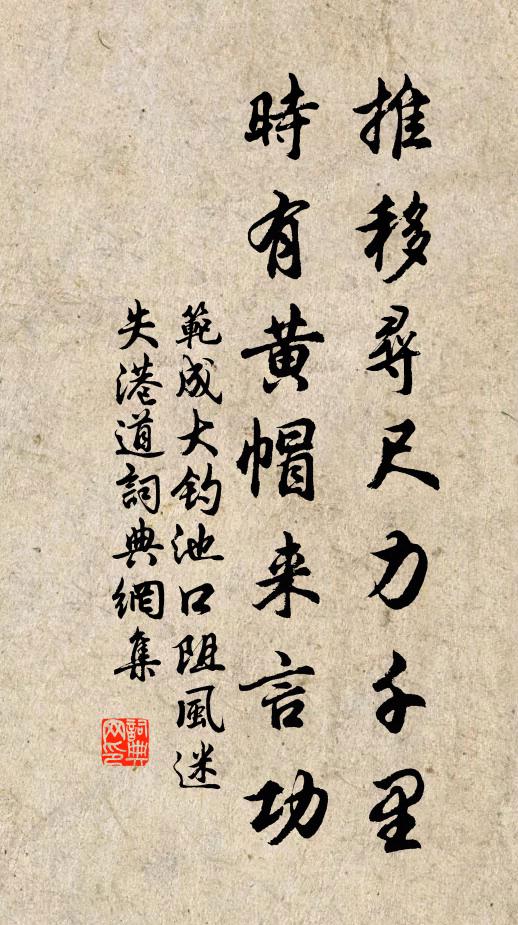 推移尋尺力千里
時有黃帽来言功
範成大釣池口阻風迷
失港道詞典網集
詞典网印